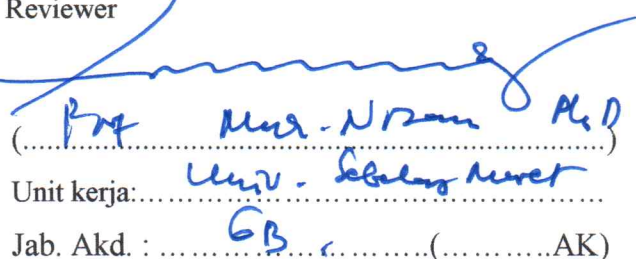 Reviewer
(Prof Muh. Nizam Ph.D)
Unit kerja: Univ. Sebelas Maret
Jab. Akd. : GB (..........AK)